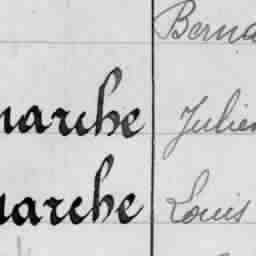 Berna
narche Julien
arche Louis